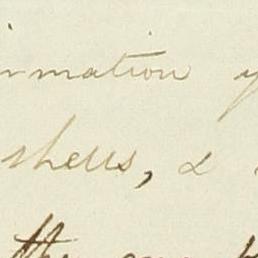 rmation y
shells, &
the